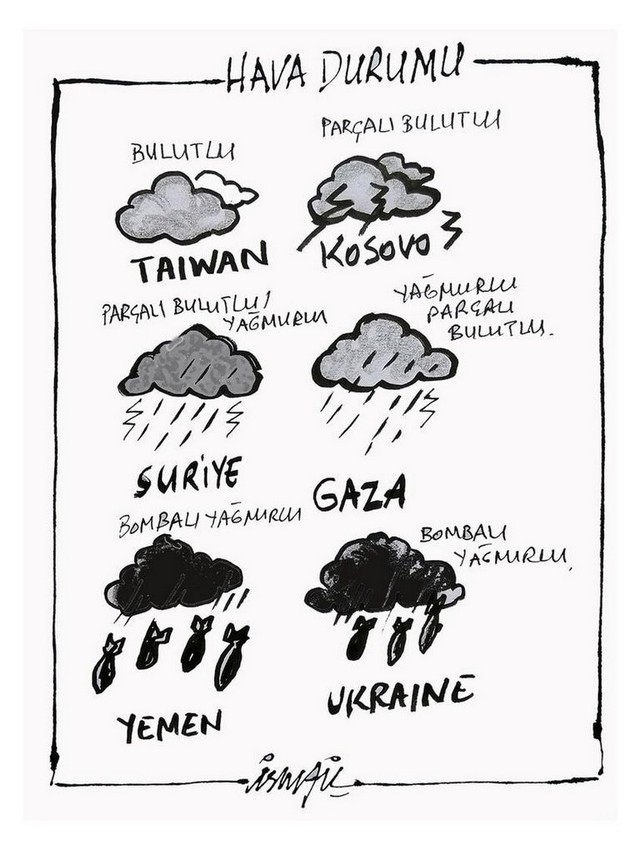 HAVA DURUMU
BULUTLU
TAIWAN
PARÇALI BULUTLU
KOSOVO
PARÇALI BULUTLU/
YAĞMURLU
SURİYE
YAĞMURLU
PARÇALI
BULUTLU.
GAZA
BOMBALI YAĞMURLU
YEMEN
BOMBALI
YAĞMURLU.
UKRAINE
İSMAİL